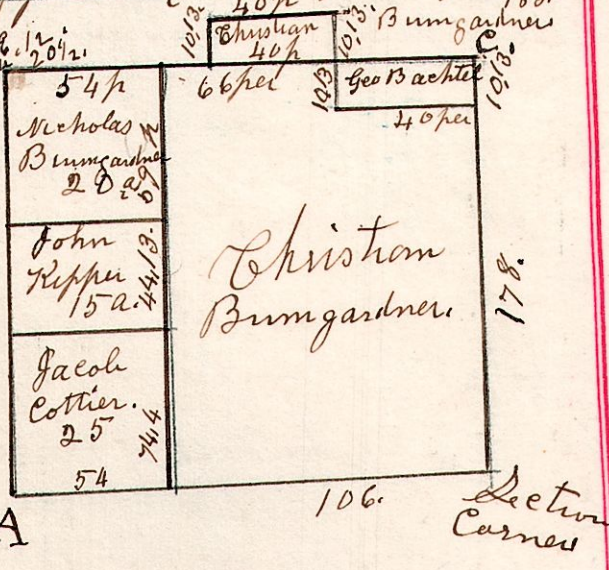 40p
Christian
40p
10.13.
10.13.
Bumgardner
20½.
54p
66per
10.13
Geo Bachtel
10.13.
40per
Nicholas
Bumgardner
28a
59 p
John
Kepper
15a.
44.13.
Christian
Bumgardner.
178.
Jacob
Cottier.
25
74.4
54
106.
Section
Corner
A